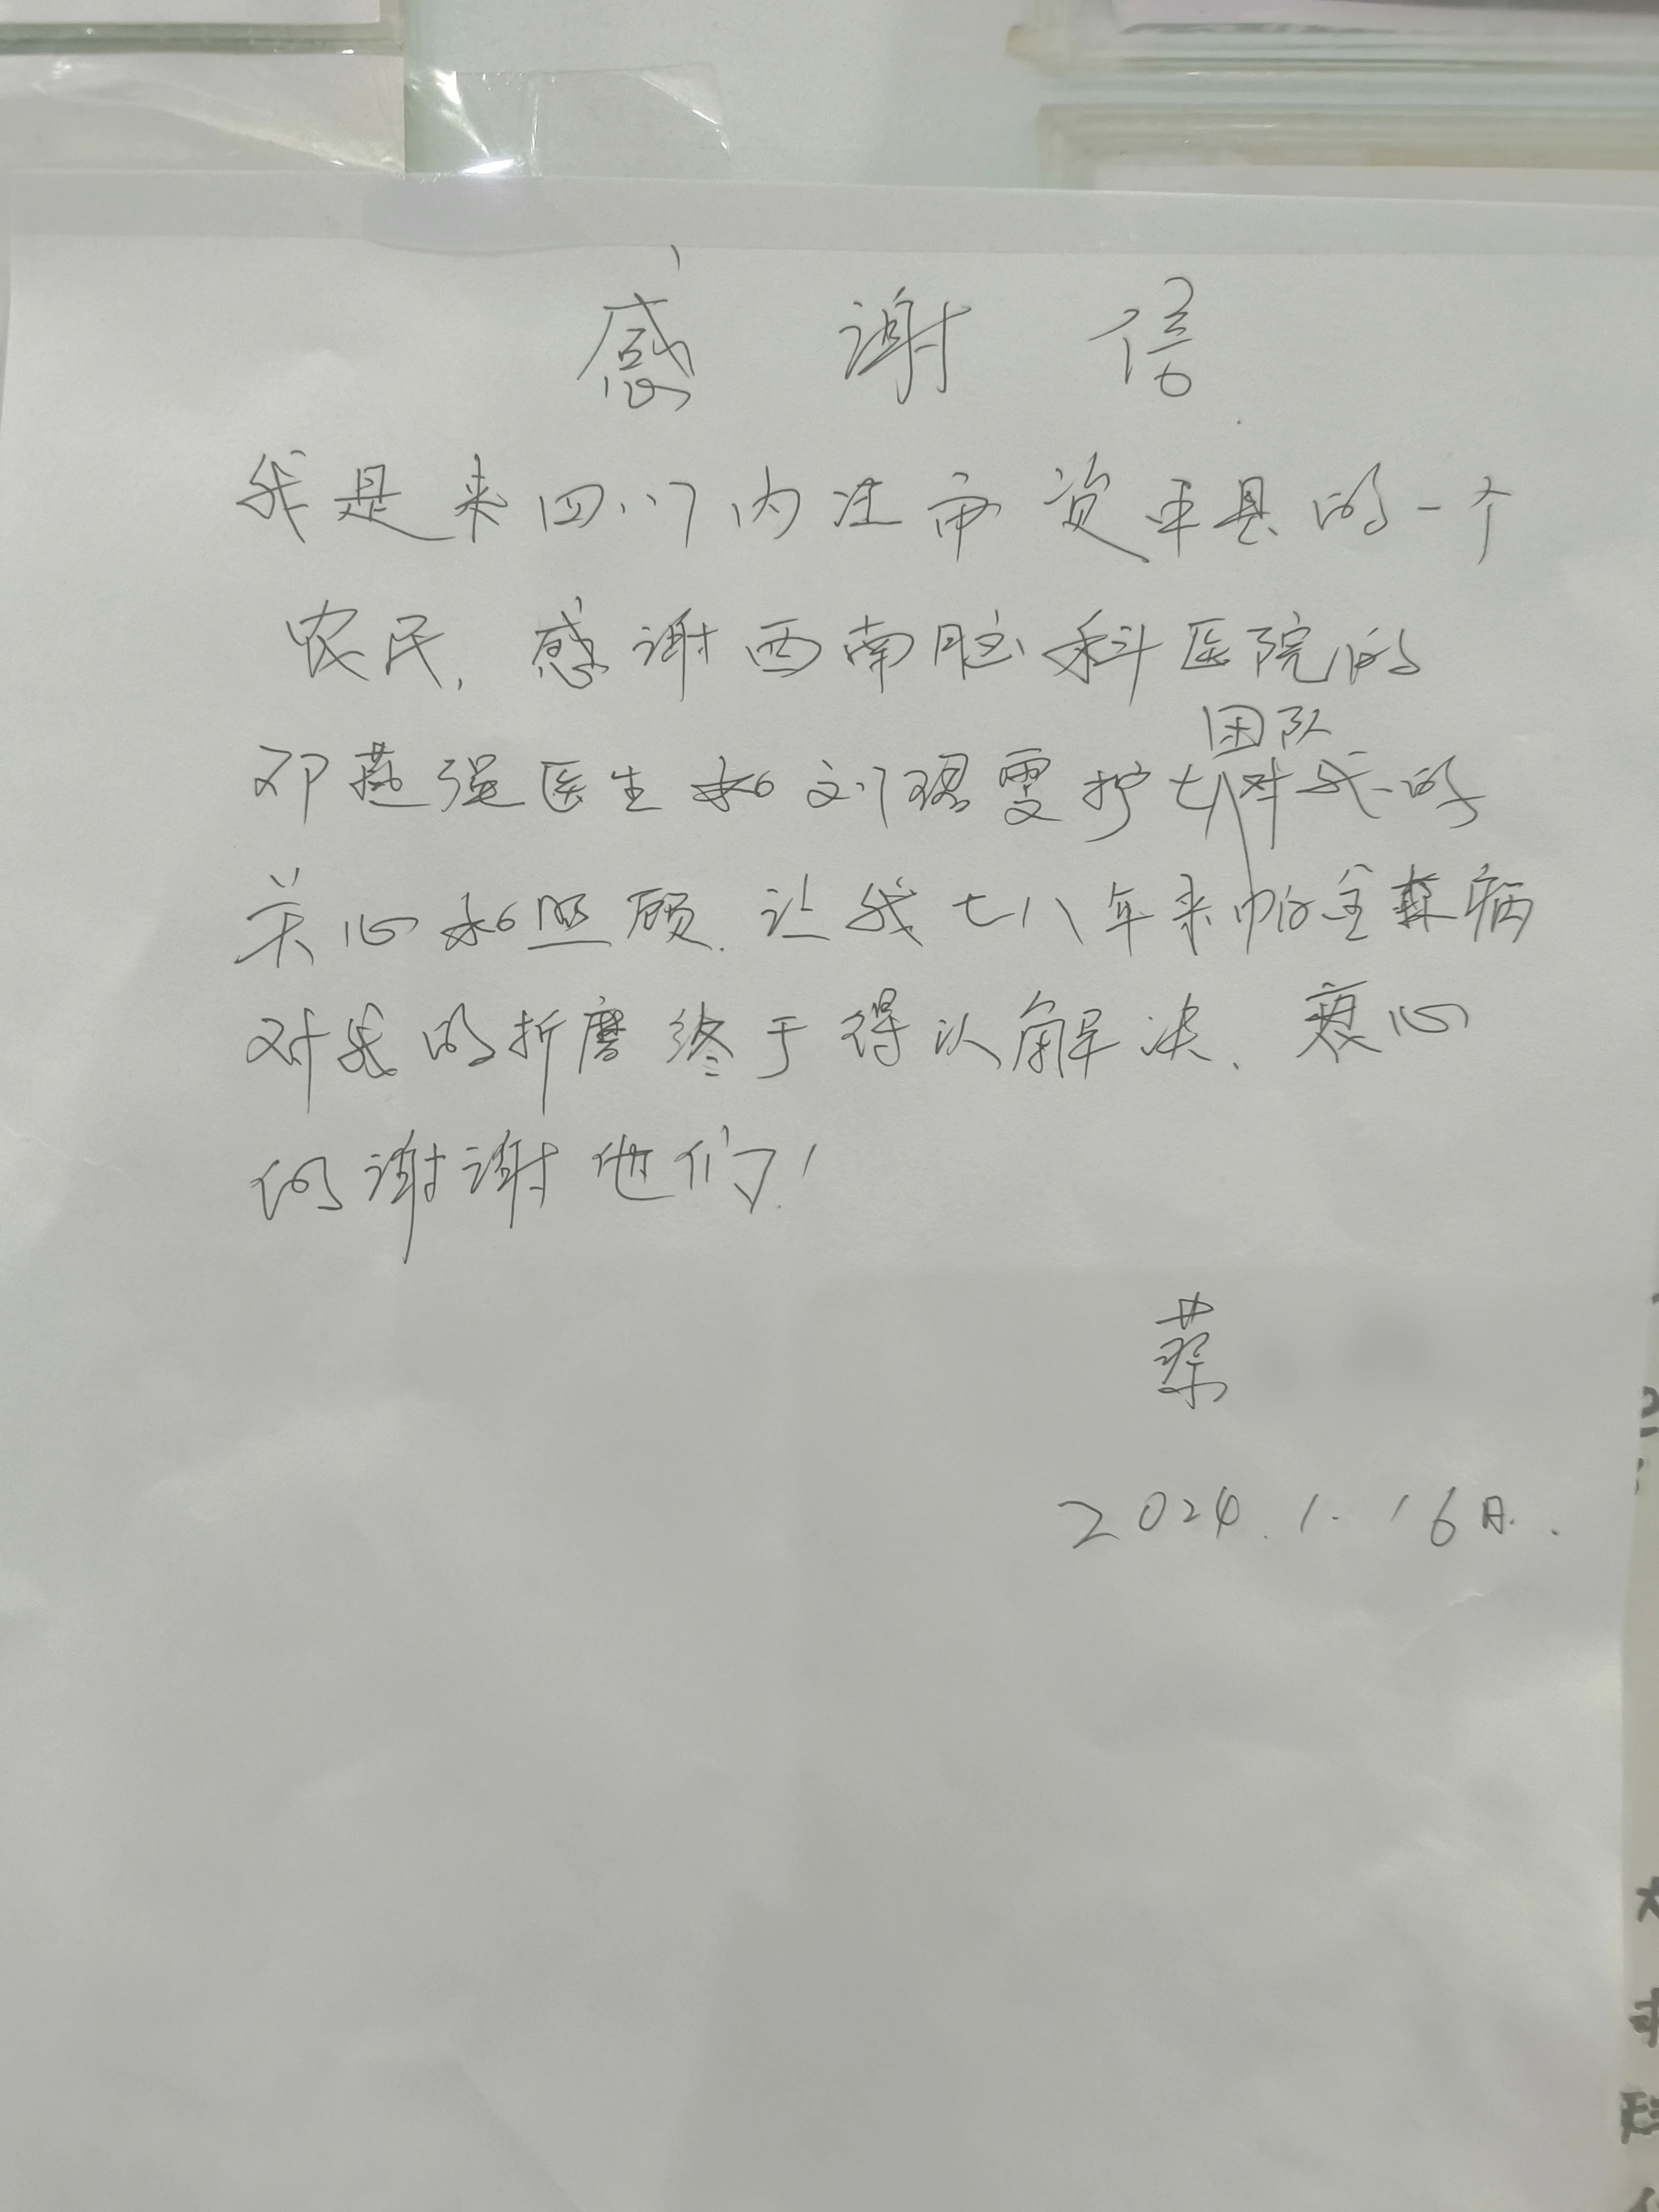 感谢信
我是来四川内江市资中县的一个
农民,感谢西南脑科医院的
团队
邓燕强医生和刘雯护士对我的
关心和照顾.让我七八年来帕金森病
对我的折磨终于得以解决、衷心
的谢谢他们!
蔡
2024.1.16日.